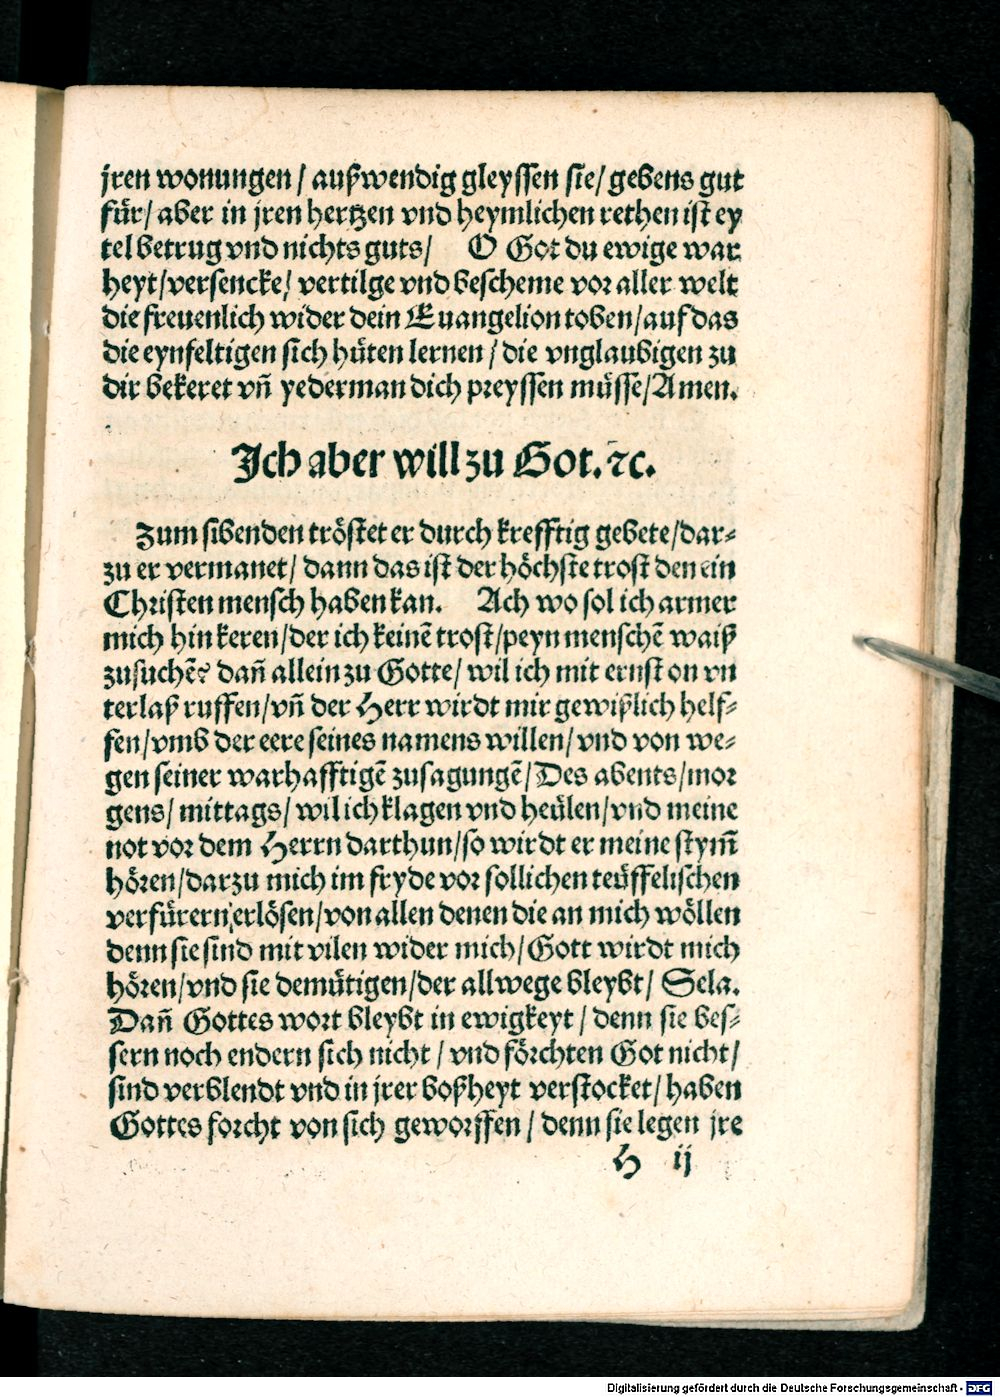 jren wonungen / außwendig gleyssen sie / gebens gut
für / aber in jren hertzen vnd heymlichen rethen ist ey
tel betrug vnd nichts guts / O Got du ewige war
heyt / versencke / vertilge vnd bescheme vor aller welt
die freuenlich wider dein Euangelion toben / auf das
die eynfeltigen sich hüten lernen / die vnglaubigen zu
dir bekeret vñ yederman dich preyssen müsse / Amen.
Ich aber will zu Got. ⁊c.
Zum sibenden tröstet er durch krefftig gebete / dar⸗
zu er vermanet / dann das ist der höchste trost den ein
Christen mensch haben kan. Ach wo sol ich armer
mich hin keren / der ich keinẽ trost / peyn menschẽ waiß
zusuchẽ? dañ allein zu Gotte / wil ich mit ernst on vn
terlaß ruffen / vñ der Herr wirdt mir gewißlich helf⸗
fen / vmb der eere seines namens willen / vnd von we⸗
gen seiner warhafftigẽ zusagungẽ / Des abents / mor
gens / mittags / wil ich klagen vnd heülen / vnd meine
not vor dem Herrn darthun / so wirdt er meine stym̃
hören / darzu mich im fryde vor sollichen teüffelischen
verfürern erlösen / von allen denen die an mich wöllen
denn sie sind mit vilen wider mich / Gott wirdt mich
hören / vnd sie demütigen / der allwege bleybt / Sela.
Dañ Gottes wort bleybt in ewigkeyt / denn sie bes⸗
sern noch endern sich nicht / vnd förchten Got nicht /
sind verblendt vnd in jrer boßheyt verstocket / haben
Gottes forcht von sich geworffen / denn sie legen jre
H ij
Digitalisierung gefördert durch die Deutsche Forschungsgemeinschaft - DFG